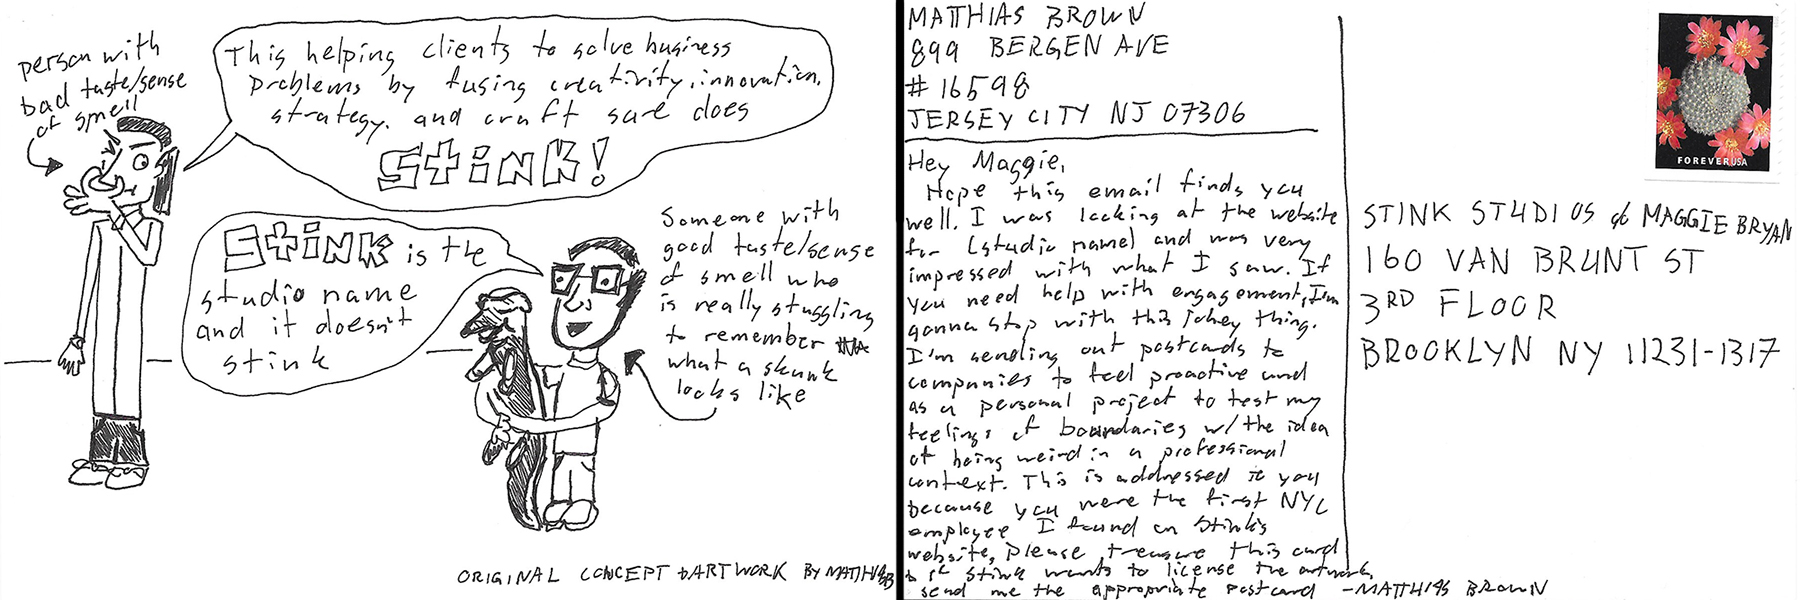 person with
bad taste/sense
of smell
This helping clients to solve business
problems by fusing creativity, innovation,
strategy, and craft sure does
STINK!
STINK is the
studio name
and it doesn't
stink
Someone with
good taste/sense
of smell who
is really stuggling
to remember
what a skunk
looks like
ORIGINAL CONCEPT & ARTWORK BY MATTHIAS B
MATTHIAS BROWN
899 BERGEN AVE
#16598
JERSEY CITY NJ 07306
Hey Maggie,
Hope this email finds you
well. I was looking at the website
for (studio name) and was very
impressed with what I saw. If
you need help with engagement, I'm
gonna stop with this jokey thing.
I'm sending out postcards to
companies to feel proactive and
as a personal project to test my
feelings of boundaries w/ the idea
of being weird in a professional
context. This is addressed to you
because you were the first NYC
employee I found on Stink's
website, please treasure this card
& if Stink wants to license the artwork,
send me the appropriate postcard -MATTHIAS BROWN
FOREVER USA
STINK STUDIOS c/o MAGGIE BRYAN
160 VAN BRUNT ST
3RD FLOOR
BROOKLYN NY 11231-1317